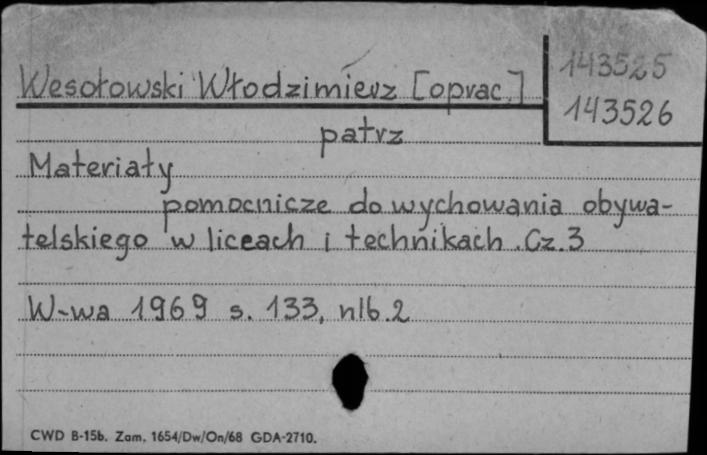 Wesołowski Włodzimierz [oprac.]
143525
143526
patrz
Materiały
pomocnicze do wychowania obywa-
telskiego w liceach i technikach. Cz. 3
W-wa 1969 s. 133, nlb. 2
CWD B-15b. Zam. 1654/Dw/On/68 GDA-2710.